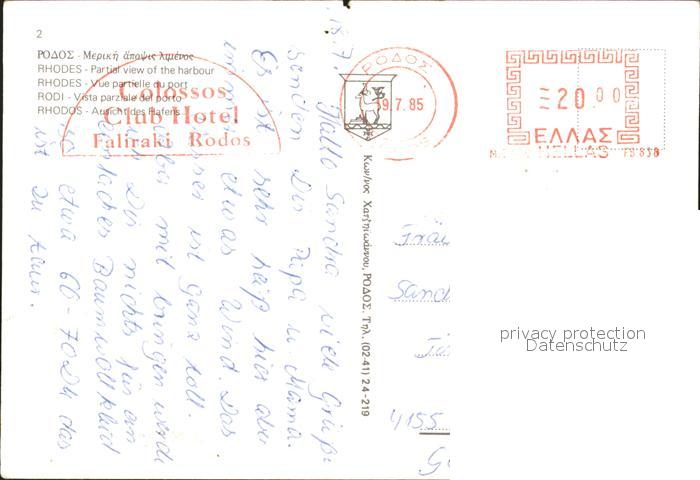 2
ΡΟΔΟΣ - Μερική άποψις λιμένος
RHODES - Partial view of the harbour
RHODES - Vue partielle du port
RODI - Vista parziale del porto
RHODOS - Ansicht des Hafens
Colossos
Club Hotel
Faliraki Rodos
ΡΟΔΟΣ
9.7.85
=20 00
ΕΛΛΑΣ
HELLAS
Κων/νος Χατζηιωάννου, ΡΟΔΟΣ. Τηλ. (02-41) 24-219
Hallo Sandra viele Grüße
senden Dir Papa u. Mama.
Es ist sehr heiß hier aber
immer etwas Wind. Das
ist ganz toll.
mit bringen werde
ich Dir nichts für ein
einfaches Baumwollkleid
etwa 60-70 DM das
ist zu teuer.
4155
privacy protection
Datenschutz